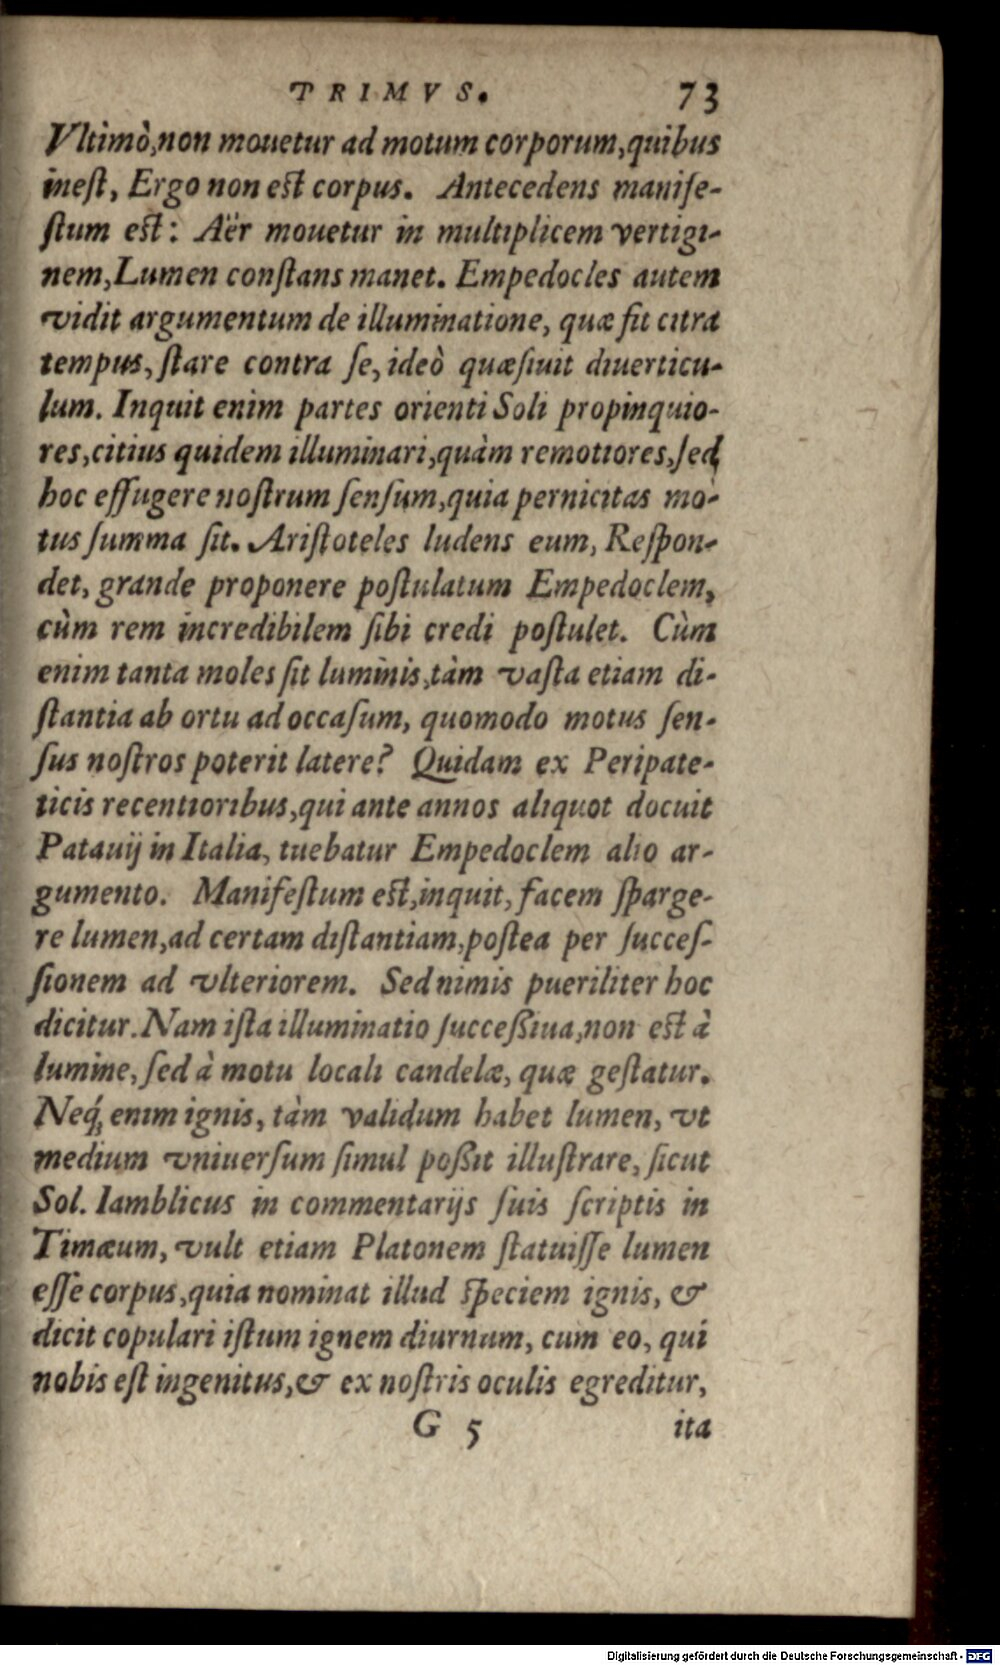 TRIMVS. 73
Vltimò, non mouetur ad motum corporum, quibus
inest, Ergo non est corpus. Antecedens manife-
stum est: Aër mouetur in multiplicem vertigi-
nem, Lumen constans manet. Empedocles autem
vidit argumentum de illuminatione, quæ fit citra
tempus, stare contra se, ideò quæsiuit diuerticu-
lum. Inquit enim partes orienti Soli propinquio-
res, citius quidem illuminari, quàm remotiores, sed
hoc effugere nostrum sensum, quia pernicitas mo-
tus summa sit. Aristoteles ludens eum, Respon-
det, grande proponere postulatum Empedoclem,
cùm rem incredibilem sibi credi postulet. Cùm
enim tanta moles sit luminis, tàm vasta etiam di-
stantia ab ortu ad occasum, quomodo motus sen-
sus nostros poterit latere? Quidam ex Peripate-
ticis recentioribus, qui ante annos aliquot docuit
Patauij in Italia, tuebatur Empedoclem alio ar-
gumento. Manifestum est, inquit, facem sparge-
re lumen, ad certam distantiam, postea per succes-
sionem ad vlteriorem. Sed nimis pueriliter hoc
dicitur. Nam ista illuminatio successiua, non est à
lumine, sed à motu locali candelæ, quæ gestatur.
Neq́; enim ignis, tàm validum habet lumen, vt
medium vniuersum simul possit illustrare, sicut
Sol. Iamblicus in commentarijs suis scriptis in
Timæum, vult etiam Platonem statuisse lumen
esse corpus, quia nominat illud speciem ignis, &
dicit copulari istum ignem diurnum, cum eo, qui
nobis est ingenitus, & ex nostris oculis egreditur,
G 5 ita
Digitalisierung gefördert durch die Deutsche Forschungsgemeinschaft - DFG